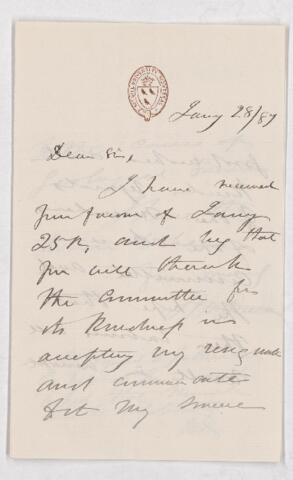 Jany 28/87
Dear Sir,
I have received
your favour of Jany
25th, and beg that
you will thank
the Committee for
its kindness in
accepting my resig
and communicate
to it my sincere